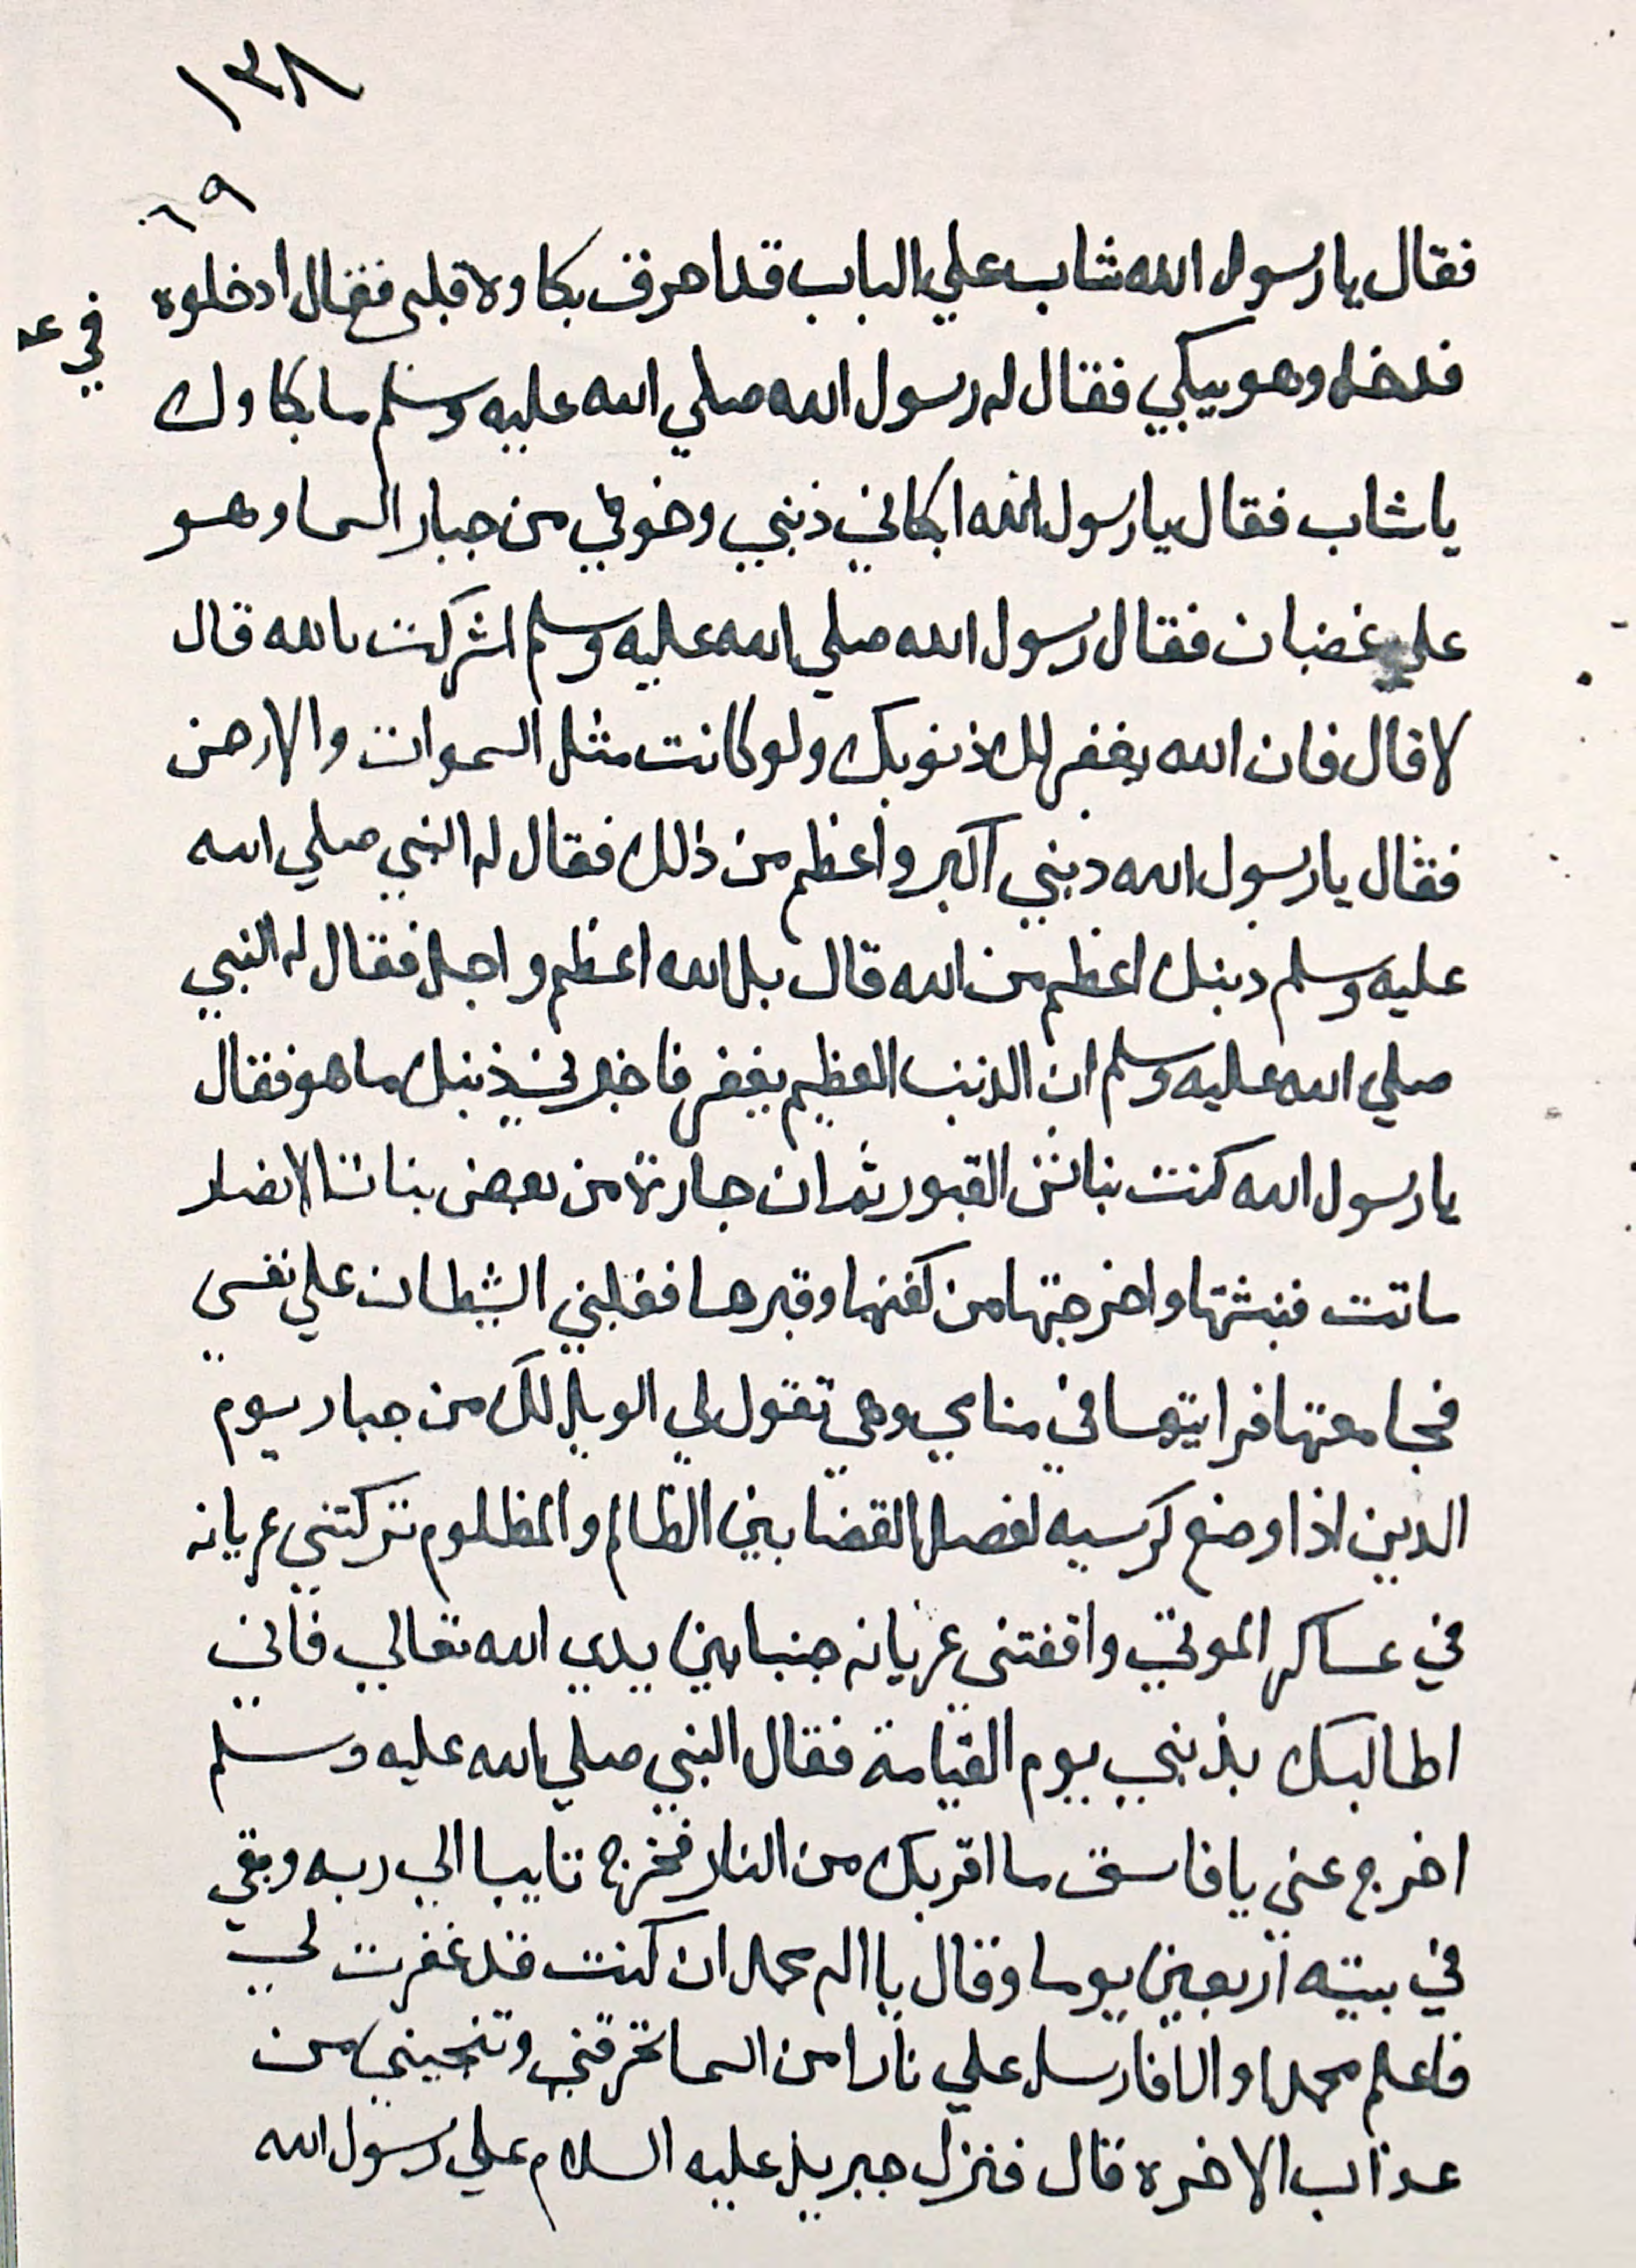 ١٣٨
٦٩
فقال يا رسول الله شاب علي الباب قد احرق بكاوه قلبي فقال ادخلوه
في عـ
فدخل وهو يبكي فقال له رسول الله صلي الله عليه وسلم ما بكاوك
يا شاب فقال يا رسول الله ابكاني ذنبي وخوفي من جبار السما وهو
علي غضبان فقال رسول الله صلي الله عليه وسلم اشركت بالله قال
لا قال فان الله يغفر لك ذنوبك ولو كانت مثل السموات والارض
فقال يا رسول الله ذنبي اكبر واعظم من ذلك فقال له النبي صلي الله
عليه وسلم ذنبك اعظم من الله قال بل الله اعظم واجل فقال له النبي
صلي الله عليه وسلم ان الذنب العظيم يغفر فاخبرني ذنبك ما هو فقال
يا رسول الله كنت نباش القبور ثم ان جارية من بعض بنات الانصار
ماتت فنبشتها واخرجتها من كفنها وقبرها فغلبني الشيطان علي نفسي
فجامعتها فرايتها في منامي وهي تقول لي الويل لك من جبار يوم
الدين اذا وضع كرسيه لفصل القضا بين الظالم والمظلوم تركتني عريانه
في عساكر الموتي واقفتني عريانه جنبا بين يدي الله تعالي فاني
اطالبك بذنبي يوم القيامة فقال النبي صلي الله عليه وسلم
اخرج عني يا فاسق ما اقربك من النار فخرج تايبا الي ربه وبقي
في بيته اربعين يوما وقال يا اله محمد ان كنت قد غفرت لي
فاعلم محمدا والا فارسل علي نارا من السما تحرقني وتنجيني من
عذاب الاخره قال فنزل جبريل عليه السلام علي رسول الله